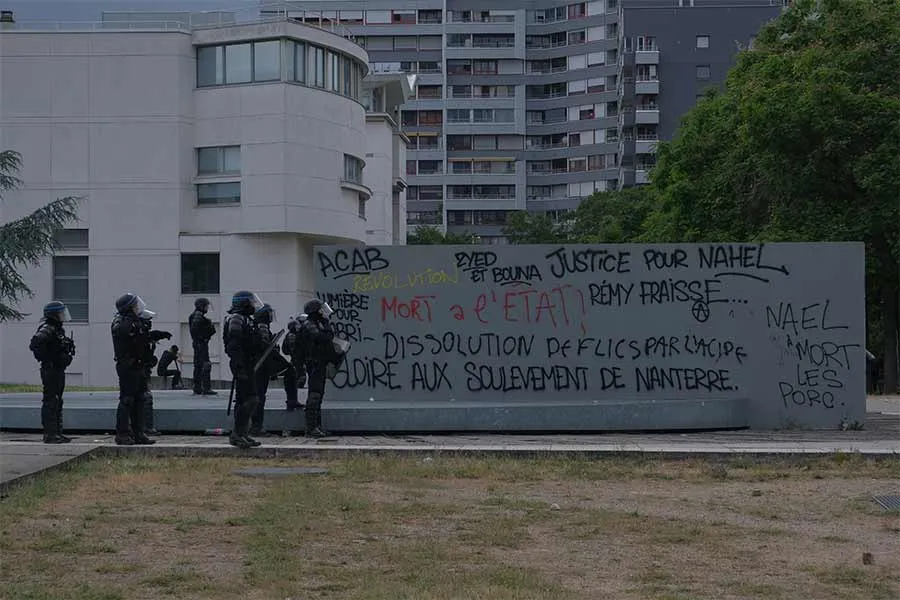 ACAB
REVOLUTION
ZYED
ET BOUNA
JUSTICE POUR NAHEL
LUMIÈRE
POUR
MORT a l'ÉTAT!
RÉMY FRAISSE...
DISSOLUTION De FLICS PAR L'ACIDE
GLOIRE AUX SOULEVEMENT DE NANTERRE.
NAEL
À MORT
LES
PORC.